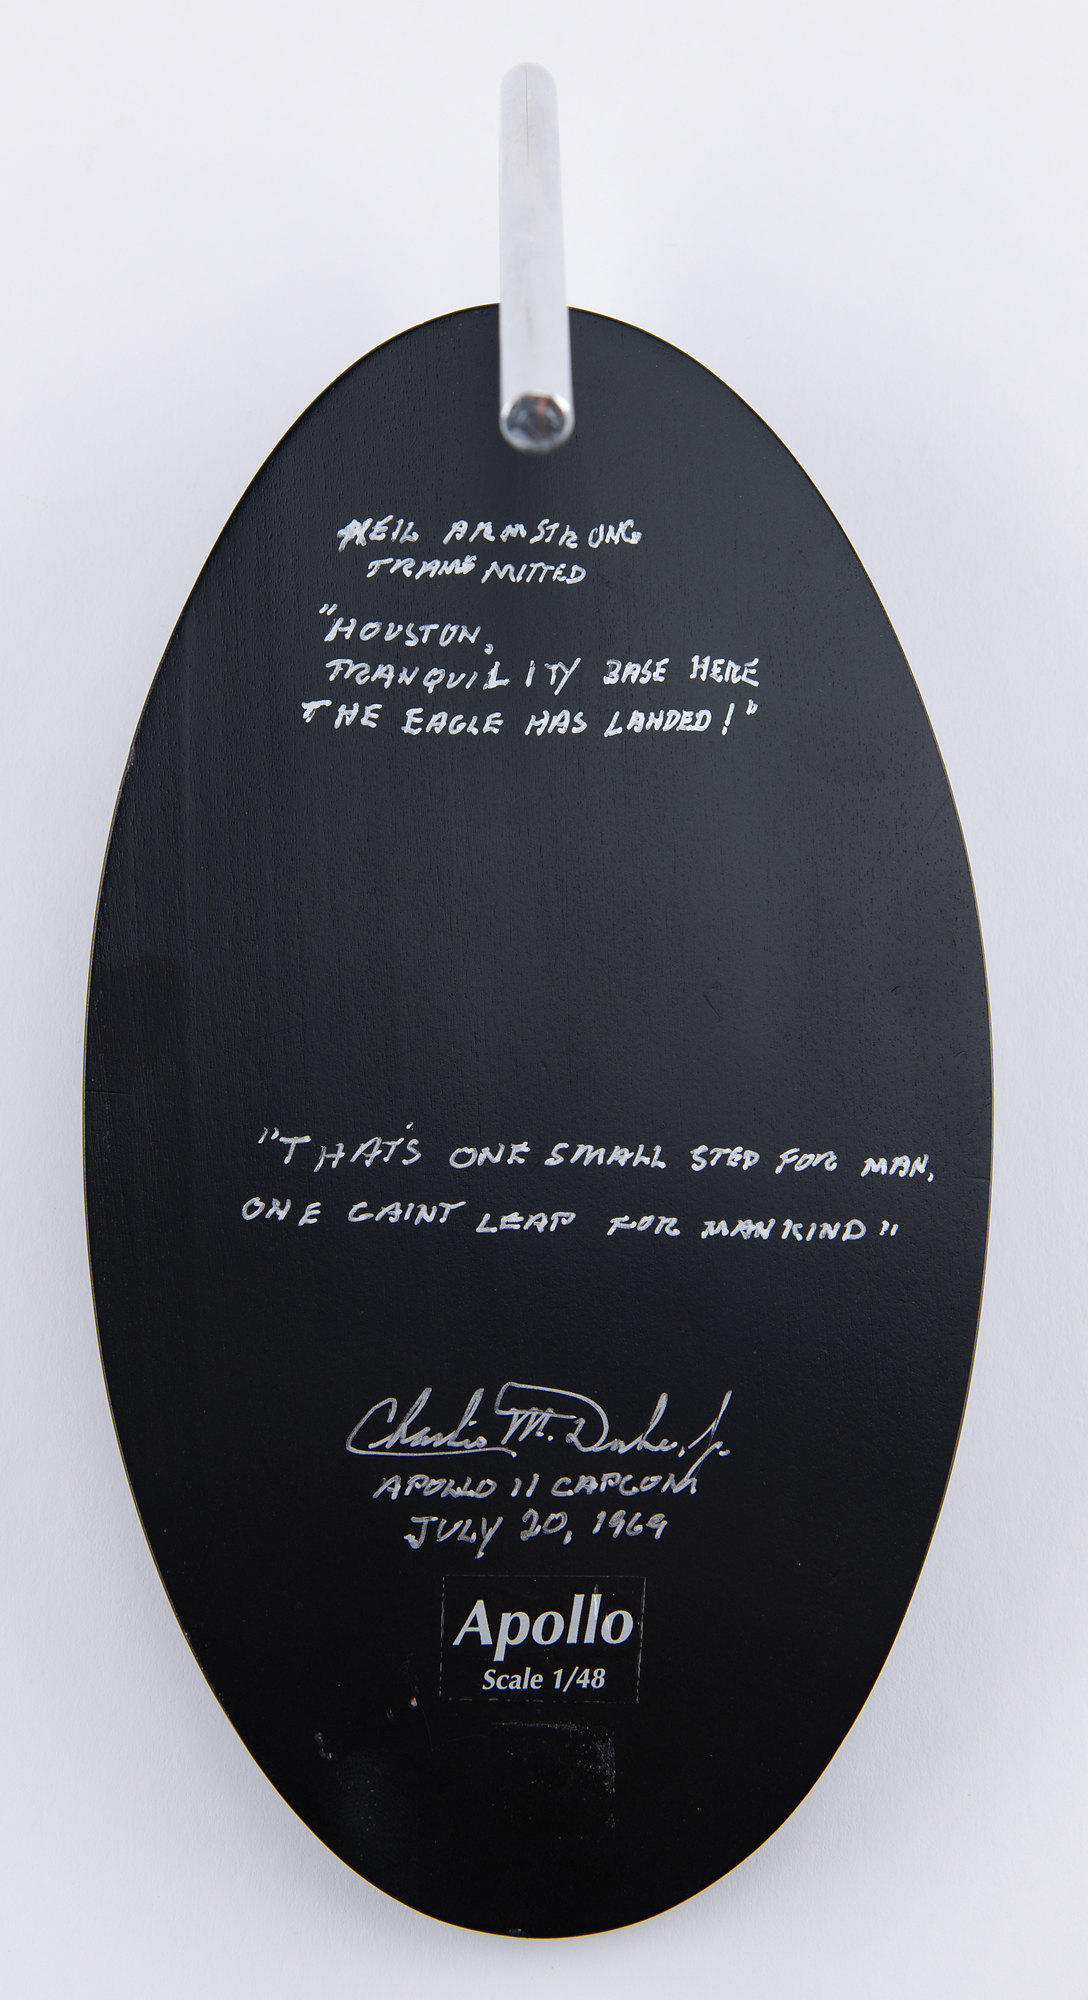 NEIL ARMSTRONG
TRANSMITTED
"HOUSTON,
TRANQUILITY BASE HERE
THE EAGLE HAS LANDED!"
"THAT'S ONE SMALL STEP FOR MAN,
ONE GAINT LEAP FOR MANKIND"
Charlie M. Duke, Jr.
APOLLO 11 CAPCOM
JULY 20, 1969
Apollo
Scale 1/48